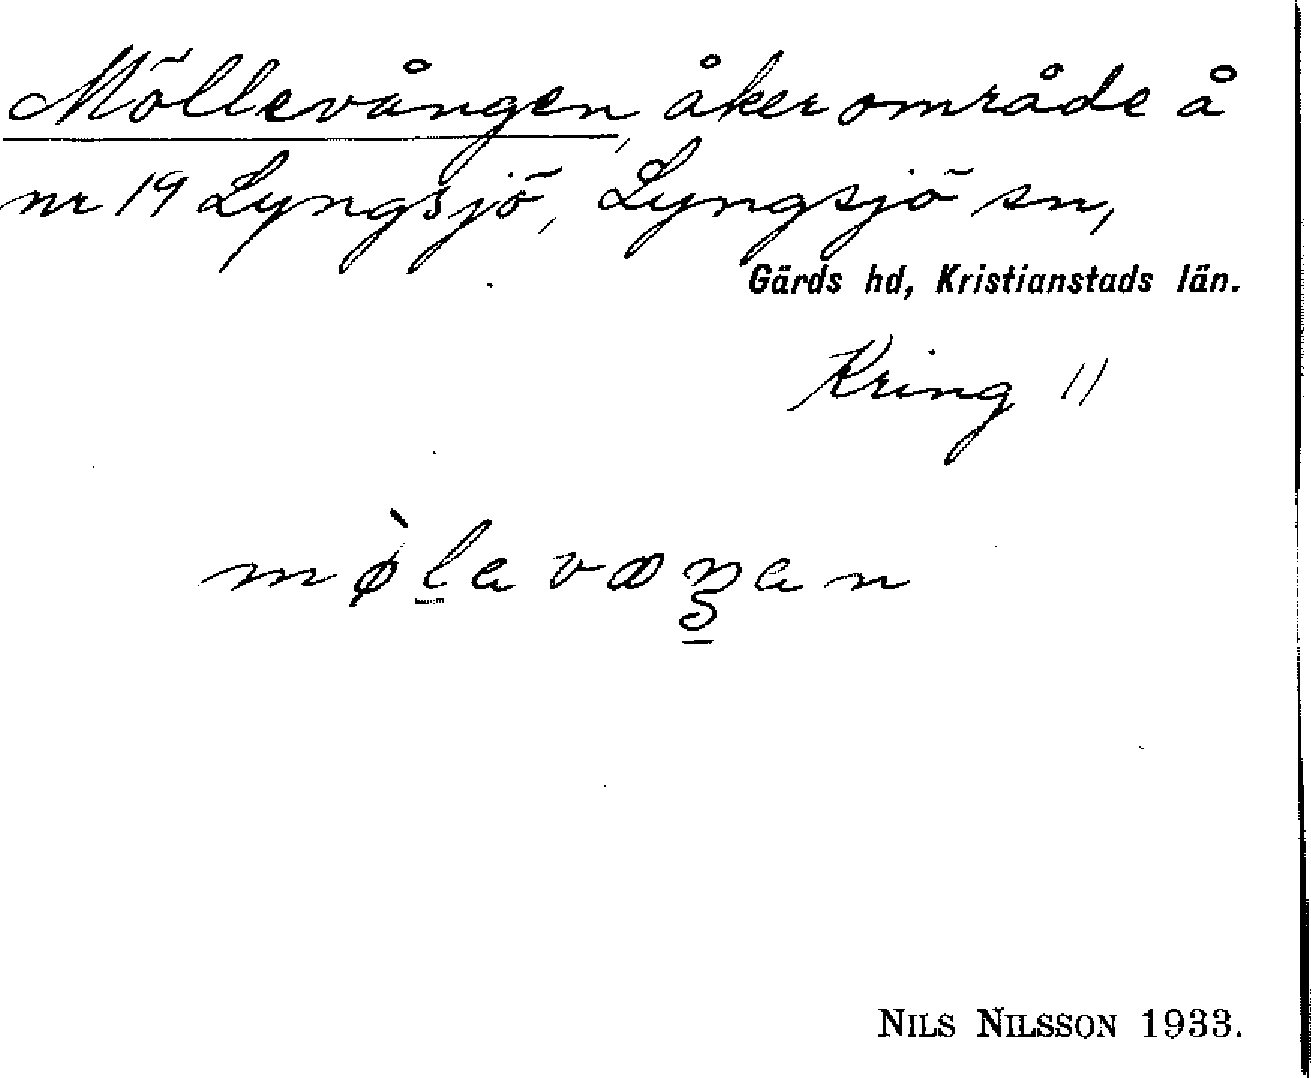 Möllevången, åkerområde å
nr 19 Lyngsjö, Lyngsjö sn,
Gärds hd, Kristianstads län.
Kring 11
NILS NILSSON 1933.